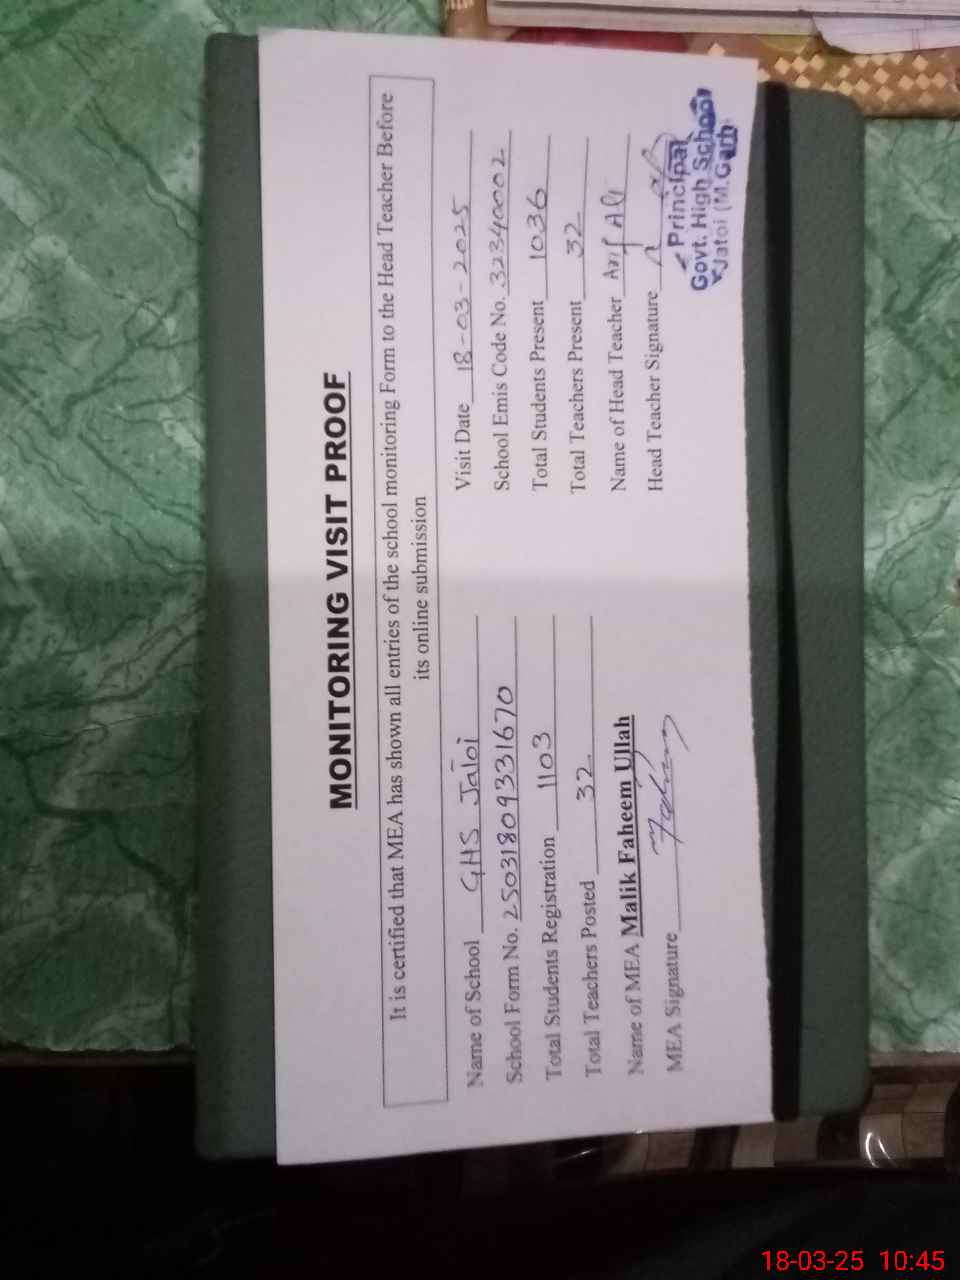 MONITORING VISIT PROOF
It is certified that MEA has shown all entries of the school monitoring Form to the Head Teacher Before
its online submission
Name of School GHS Jatoi Visit Date 18-03-2025
School Form No. 2503180933 1670 School Emis Code No. 32340002
Total Students Registration 1103 Total Students Present 1036
Total Teachers Posted 32 Total Teachers Present 32
Name of MEA Malik Faheem Ullah Name of Head Teacher Arif Ali
MEA Signature Head Teacher Signature
Principal
Govt. High School
Jatoi (M.Garh
18-03-25 10:45